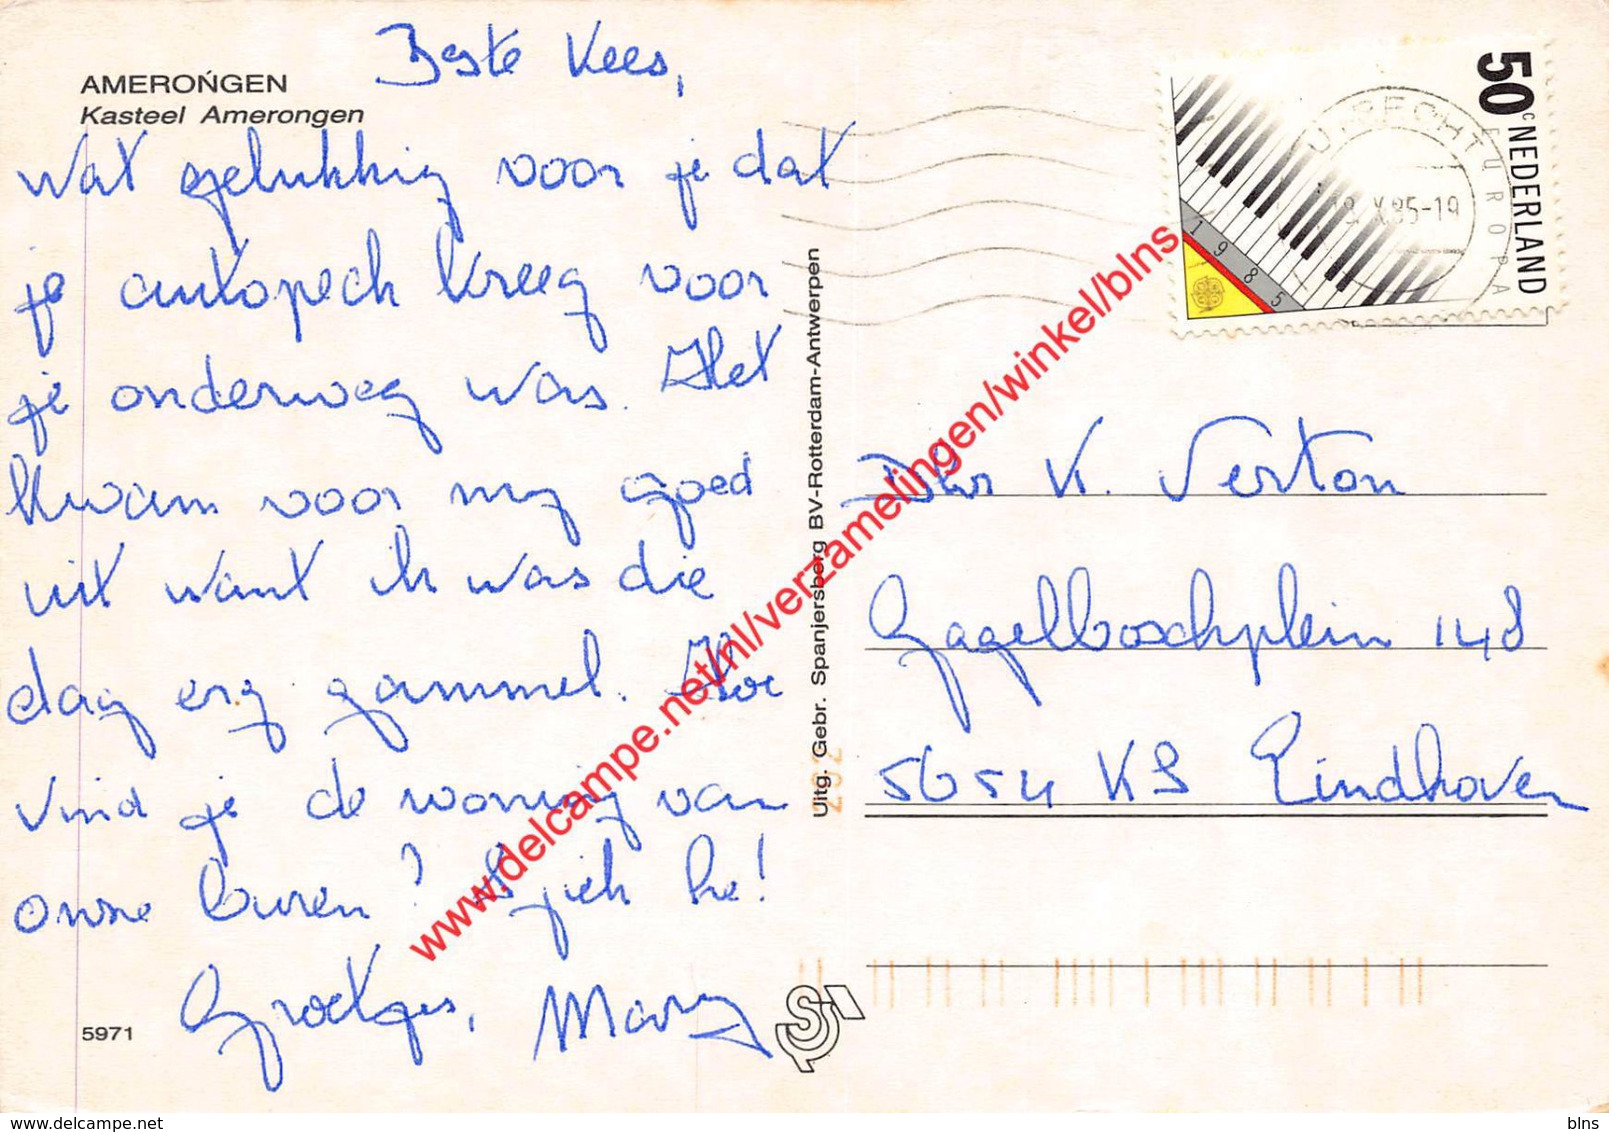 AMERONGEN
Kasteel Amerongen
Beste Kees,
wat gelukkig voor je dat
je autopech kreeg voor
je onderweg was. Het
kwam voor mij goed
uit want ik was die
dag erg gammel. Hoe
vind je de woning van
onze buren? Is jich he!
Groetjes, Mary
5971
Uitg. Gebr. Spanjersberg BV-Rotterdam-Antwerpen
292
50c NEDERLAND
EUROPA
1985
UTRECHT
18 X.85-19
Dhr K. Verton
Gagelboschplein 148
5654 KS Eindhoven
www.delcampe.net/nl/verzamelingen/winkel/blns
www.delcampe.net
blns